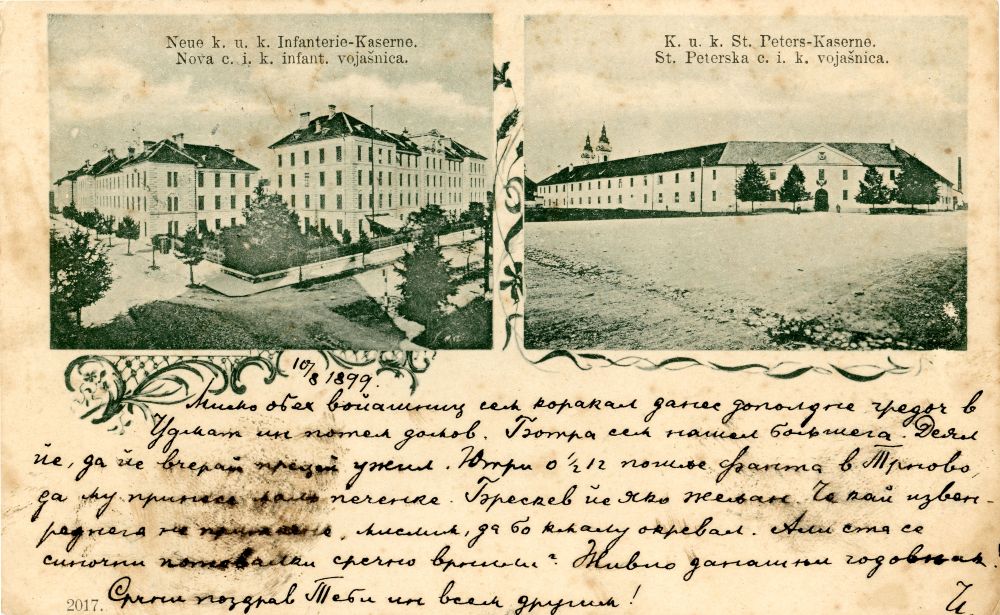 Neue k. u. k. Infanterie-Kaserne.
Nova c. i. k. infant. vojašnica.
K. u. k. St. Peters-Kaserne.
St. Peterska c. i. k. vojašnica.
10/8 1899.
Мимо обех войашниц сем коракал данес дополдне гредоч в
Удмат ин потем домов. Ботра сем нашел большега. Деял
йе, да йе вчерай прецей ужил. Ютри о ½ 12 пошље фанта в Трново,
да му принесе мало печенке. Брескев йе яко желян. Че кай извен-
реднега не мислим, да бо кмалу окревал. Али сте се
синочи потовалки сречно врнили? Живио данашњи годовњак!
Срчни поздрав Теби ин всем другим!
2017.